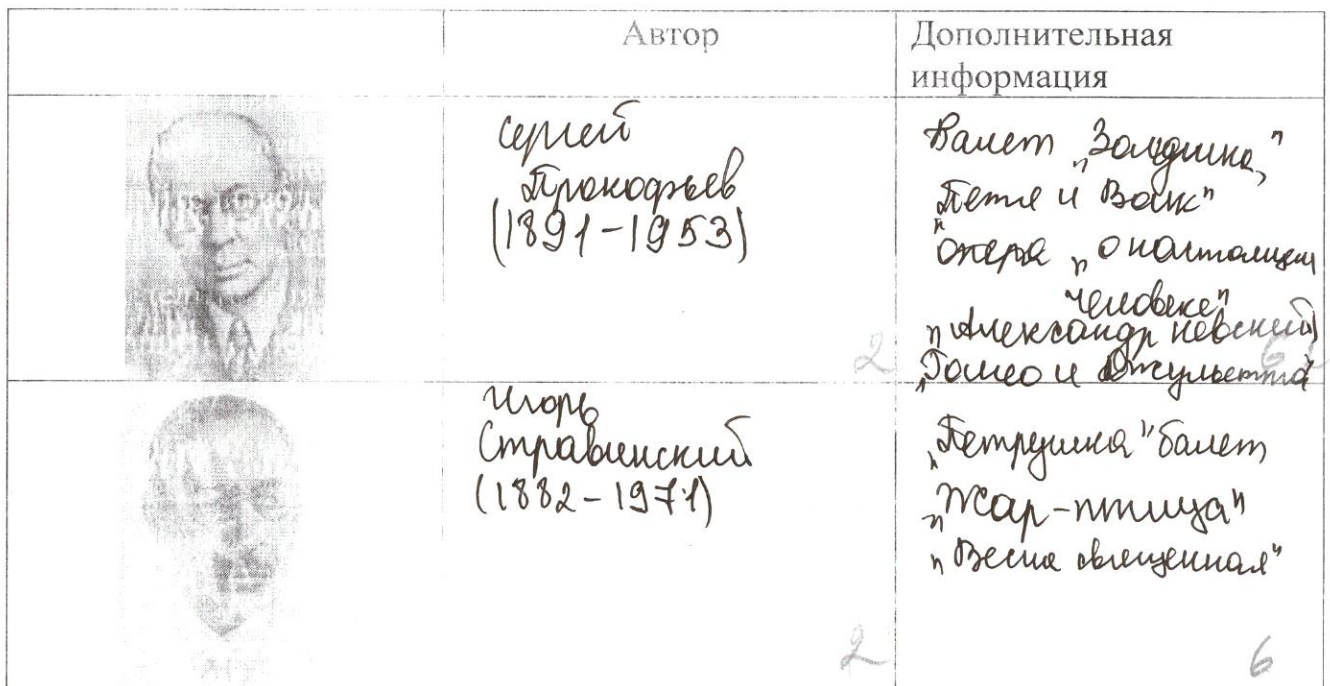 Автор
Дополнительная
информация
Сергей
Прокофьев
(1891-1953)
2
Балет „Золушка,"
„Петя и Волк"
опера „О настоящем
человеке"
„Александр Невский
„Ромео и Джульетта"
6
Игорь
Стравинский
(1882-1971)
2
„Петрушка" балет
„Жар-птица"
„Весна священная"
6